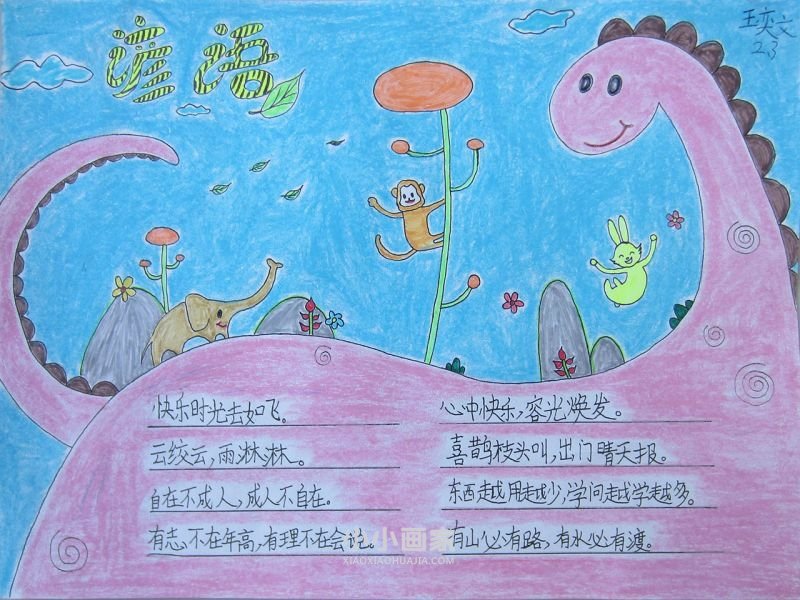 谚语
王奕文
2.3
快乐时光去如飞。
云绞云,雨淋淋。
自在不成人,成人不自在。
有志不在年高,有理不在会说。
心中快乐,容光焕发。
喜鹊枝头叫,出门晴天报。
东西越用越少,学问越学越多。
有山必有路,有水必有渡。
小小画家
XIAOXIAOHUAJIA.COM